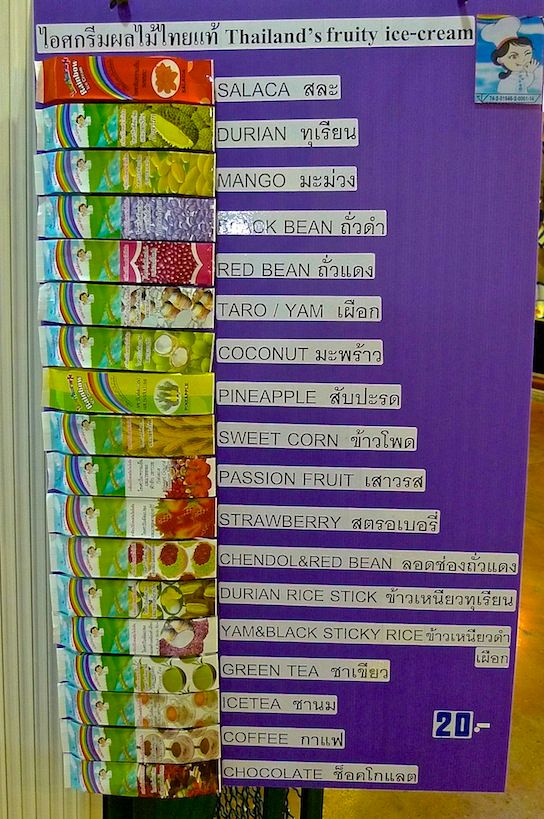 ไอศกรีมผลไม้ไทยแท้ Thailand's fruity ice-cream
SALACA สละ
DURIAN ทุเรียน
MANGO มะม่วง
BLACK BEAN ถั่วดำ
RED BEAN ถั่วแดง
TARO / YAM เผือก
COCONUT มะพร้าว
PINEAPPLE สับปะรด
SWEET CORN ข้าวโพด
PASSION FRUIT เสาวรส
STRAWBERRY สตรอเบอรี่
CHENDOL&RED BEAN ลอดช่องถั่วแดง
DURIAN RICE STICK ข้าวเหนียวทุเรียน
YAM&BLACK STICKY RICE ข้าวเหนียวดำ
เผือก
GREEN TEA ชาเขียว
ICETEA ชานม
COFFEE กาแฟ
CHOCOLATE ช็อคโกแลต
20.-
Rainbow
Rainbow
PINEAPPLE